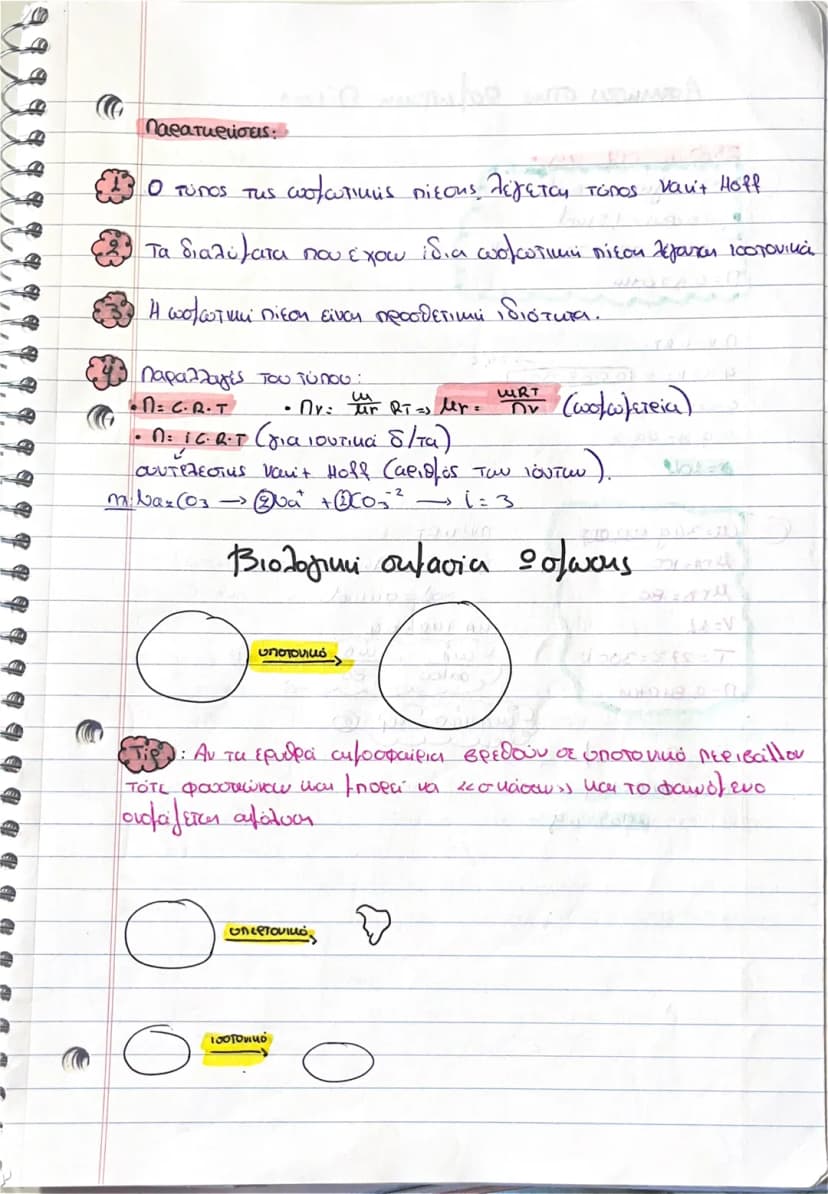 Παρατηρήσεις:
1 Ο τύπος της ωσμωτικής πίεσης, λέγεται τύπος Van't Hoff
2 Τα διαλύματα που έχουν ίδια ωσμωτική πίεση λέγονται ισοτονικά
3 Η ωσμωτική πίεση είναι προσθετική ιδιότητα.
4 Παραλλαγές του τύπου:
• Π= C.R.T • Πv= m/Mr RT => Mr= mRT/Πv (ωσμωμετρία)
• Π= i C.R.T (για ιοντικά δ/τα)
συντελεστής Van't Hoff (αριθμός των ιόντων).
π.χ. Na₂CO₃ → ②Na⁺ + ①CO₃⁻² → i = 3
Βιολογική σημασία Ώσμωσης
υποτονικό
Tip: Αν τα ερυθρά αιμοσφαίρια βρεθούν σε υποτονικό περιβάλλον
τότε φουσκώνουν και μπορεί να «σπάσουν» και το φαινόμενο
ονομάζεται αιμόλυση
υπερτονικό
ισοτονικό